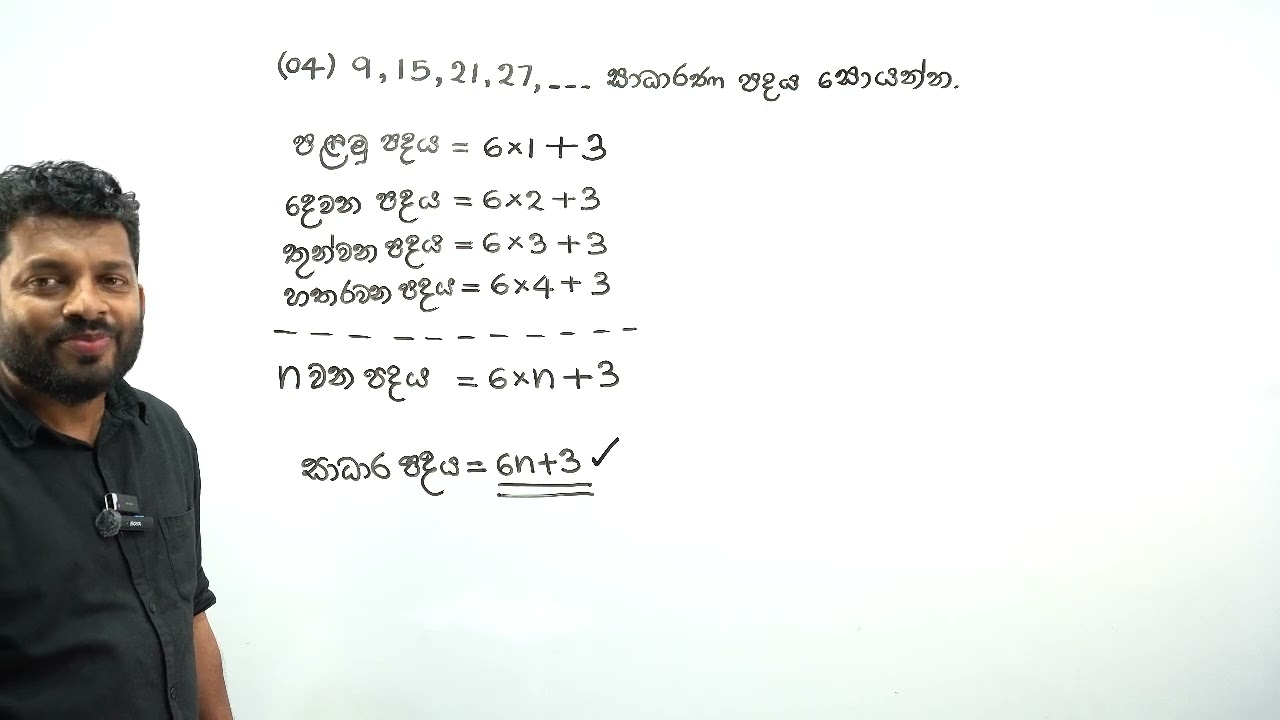 (04) 9, 15, 21, 27, --- සාධාරණ පදය සොයන්න.
පළමු පදය = 6×1+3
දෙවන පදය = 6×2+3
තුන්වන පදය = 6×3+3
හතරවන පදය = 6×4+3
n වන පදය = 6×n+3
සාධාර පදය = 6n+3 ✓